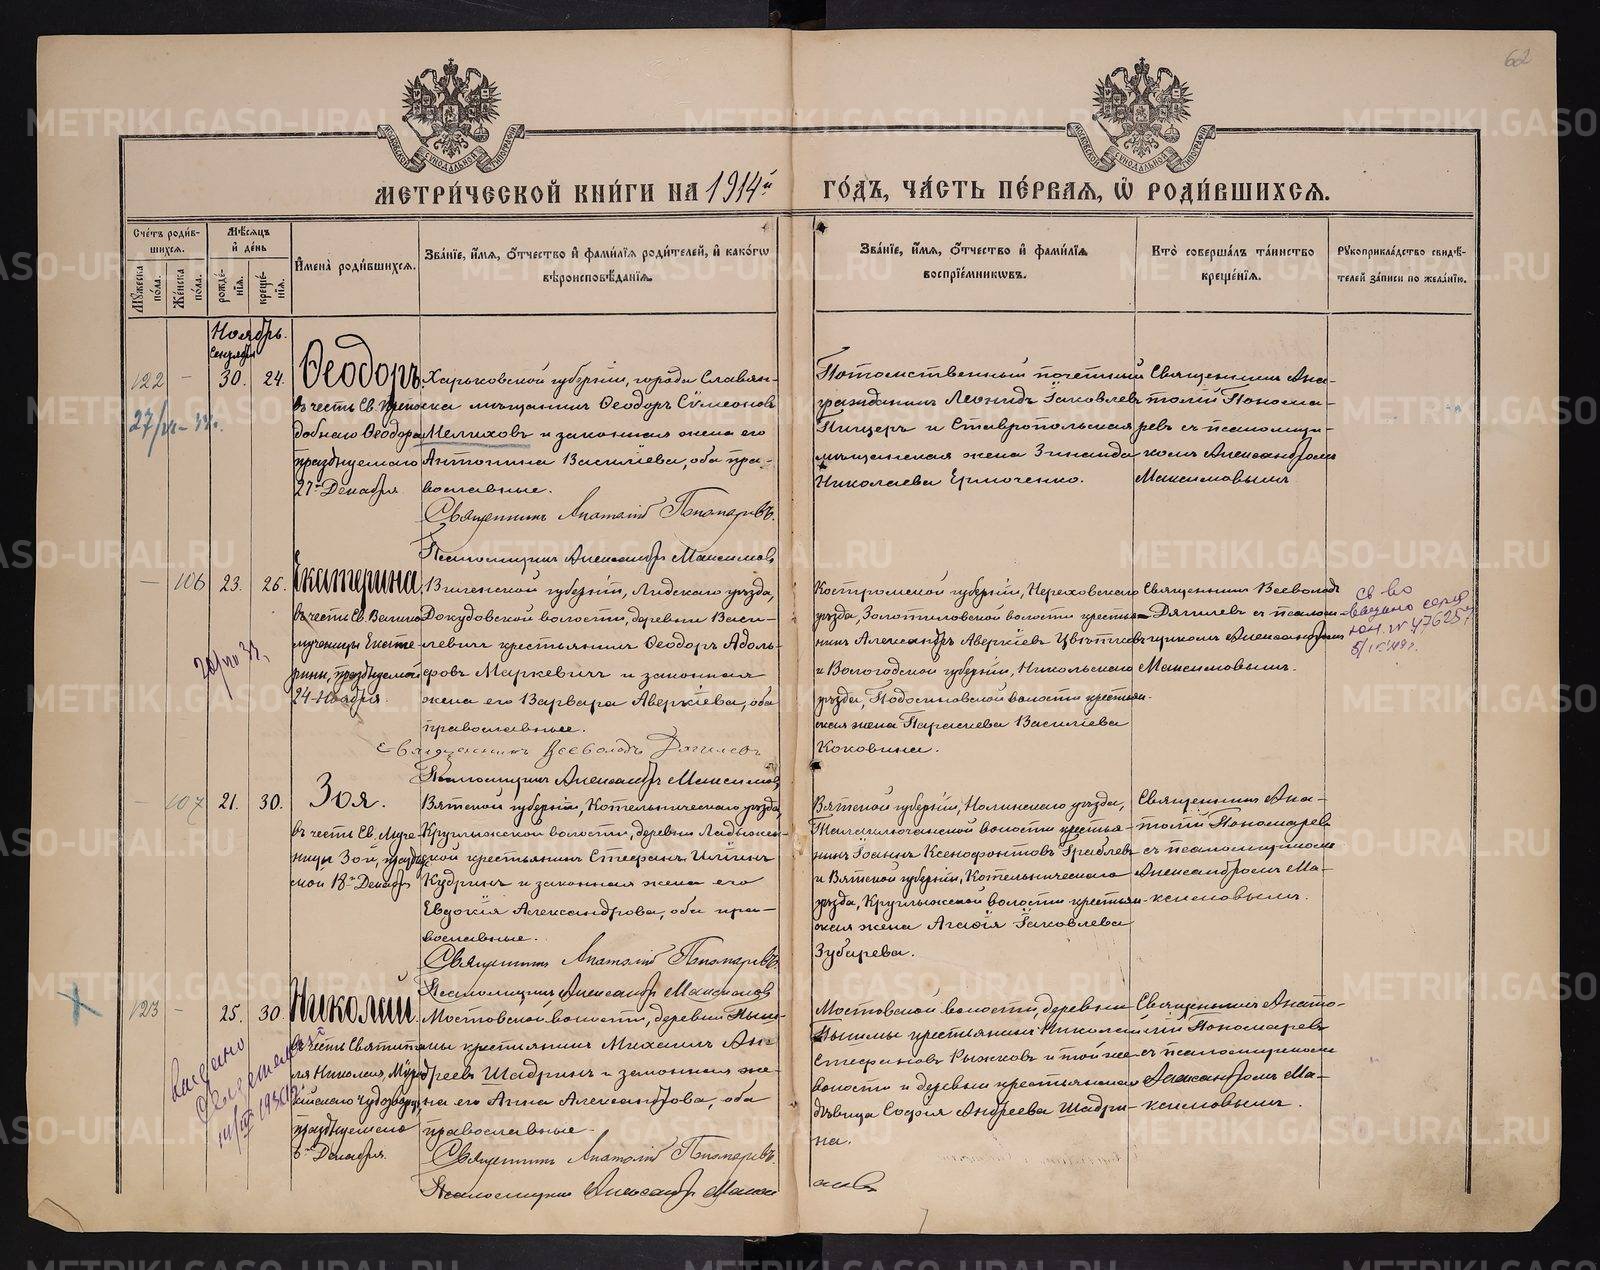 62
МЕТРИ́ЧЕСКОЙ КНИ́ГИ НА 1914й ГО́ДЪ, ЧА́СТЬ ПЕ́РВАЯ, Ѡ РОДИ́ВШИХСЯ.
Сче́тъ роди́в-
шихся.
Мѣ́сяцъ
и де́нь
Му́жеска по́ла.
Же́нска по́ла.
рожде́-
нія.
креще́-
нія.
И҆мена̀ роди́вшихся.
Зва́ніе, и҆́мя, ѻ҆́тчество и҆ фами́лія роди́телей, и҆ како́гѡ
вѣроисповѣ́данія.
Зва́ніе, и҆́мя, ѻ҆́тчество и҆ фами́лія
воспріе́мникѡвъ.
Кто̀ соверша́лъ та́инство
креще́нія.
Рукоприкла́дство свидѣ́-
телей за́писи по жела́нію.
Ноябрь.
Сентября
122 - 30. 24.
Ѳеодоръ.
въ честь Св. Препо-
добнаго Ѳеодора
празднуемаго
27го Декабря
Харьковской губерніи, города Славян-
ска мѣщанинъ Ѳеодоръ Сѷмеоновъ
Мелиховъ и законная жена его
Антонина Василіева, оба пра-
вославные.
Священникъ Анатолій Пономаревъ.
Псаломщикъ Александръ Максимовъ
Потомственный почетный
гражданинъ Леонидъ Іаковлевъ
Пицеръ и Ставропольская
мѣщанская жена Зинаида
Николаева Ермоченко.
Священникъ Ана-
толій Понома-
ревъ съ псаломщи-
комъ Александромъ
Максимовымъ
- 106 23. 26.
Екатерина,
въ честь Св. Велико-
мученицы Екате-
рины, празднуемой
24го Ноября.
Виленской губерніи, Лидскаго уѣзда,
Докудовской волости, деревни Васи-
левичи крестьянинъ Ѳеодоръ Адоль-
фовъ Маркевичъ и законная
жена его Варвара Аверкіева, оба
православные.
Священникъ Всеволодъ Дягилевъ
Псаломщикъ Александръ Максимовъ
Костромской губерніи, Нерехтскаго
уѣзда, Золотиловской волости крестья-
нинъ Александръ Аверкіевъ Цвѣтковъ
и Вологодской губерніи, Никольскаго
уѣзда, Подосиновской волости крестьян-
ская жена Параскева Василіева
Коковина.
Священникъ Всеволодъ
Дягилевъ съ псалом-
щикомъ Александромъ
Максимовымъ.
Св во
выдано
- 107 21. 30.
Зоя.
въ честь Св. Муче-
ницы Зои, праздну-
мой 18го Декабр
Вятской губерніи, Котельническаго уѣзда,
Круглыжской волости, деревни Ладыжен-
ской крестьянинъ Стефанъ Иліинъ
Кудринъ и законная жена его
Евдокія Александрова, оба пра-
вославные.
Священникъ Анатолій Пономаревъ.
Псаломщикъ Александръ Максимовъ
Вятской губерніи, Нолинскаго уѣзда,
Талоключинской волости крестья-
нинъ Іоаннъ Ксенофонтовъ Граблевъ
и Вятской губерніи, Котельническаго
уѣзда, Круглыжской волости крестьян-
ская жена Агаѳія Іаковлева
Зубарева.
Священникъ Ана-
толій Пономаревъ
съ псаломщикомъ
Александромъ Ма-
ксимовымъ.
123 - 25. 30.
Николай.
въ честь Святите-
ля Николая, Мѷрли-
кійскаго чудотворца,
празднуемаго
6го Декабря.
Мостовской волости, деревни Пыш-
мы крестьянинъ Михаилъ Ан-
дреевъ Шадринъ и законная же-
на его Анна Александрова, оба
православные.
Священникъ Анатолій Пономаревъ.
Псаломщикъ Александръ Максимовъ
Мостовской волости, деревни
Пышмы крестьянинъ Николай
Стефановъ Рыжковъ и той же
волости и деревни крестьянская
дѣвица Софія Андреева Шадри-
на.
Священникъ Анато-
лій Пономаревъ
съ псаломщикомъ
Александромъ Ма-
ксимовымъ.
выдано